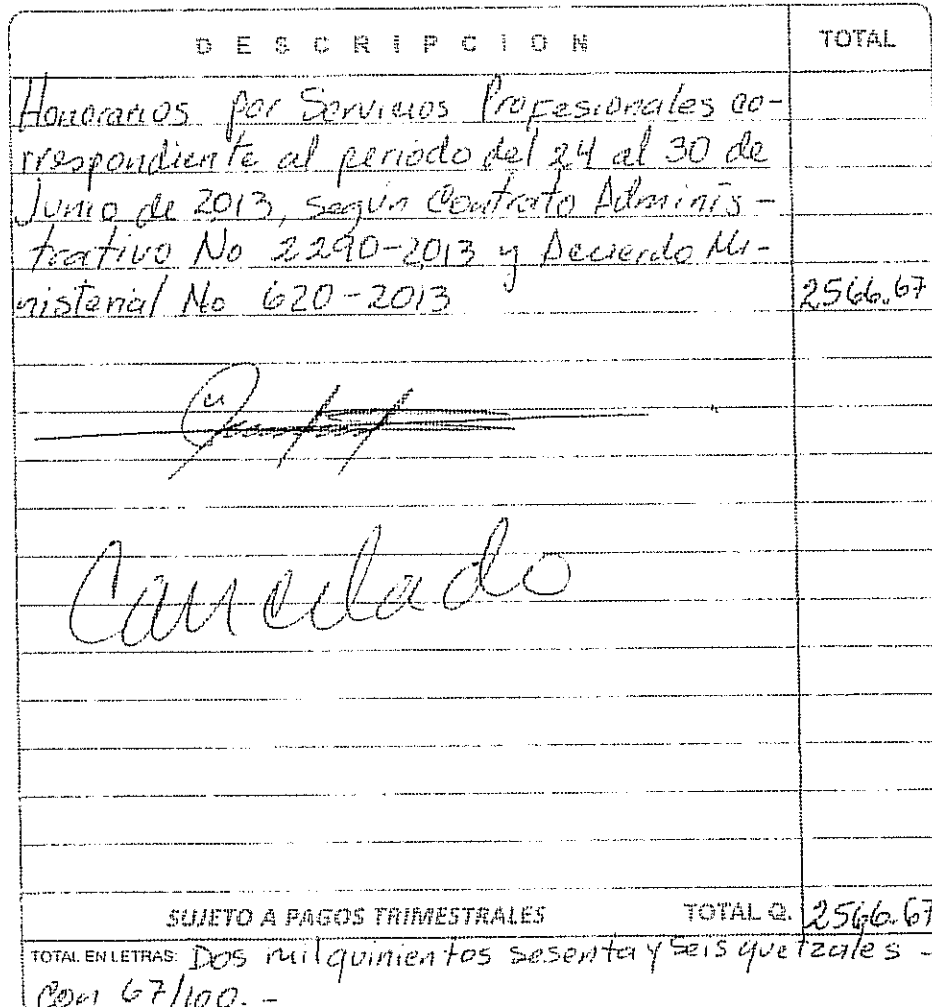 DESCRIPCION TOTAL
Honorarios por Servicios Profesionales co-
rrespondiente al periodo del 24 al 30 de
Junio de 2013, según Contrato Adminis-
trativo No 2290-2013 y Acuerdo Mi-
nisterial No 620-2013 2566.67
Cancelado
SUJETO A PAGOS TRIMESTRALES TOTAL Q. 2566.67
TOTAL EN LETRAS: Dos mil quinientos sesenta y seis quetzales -
con 67/100.-